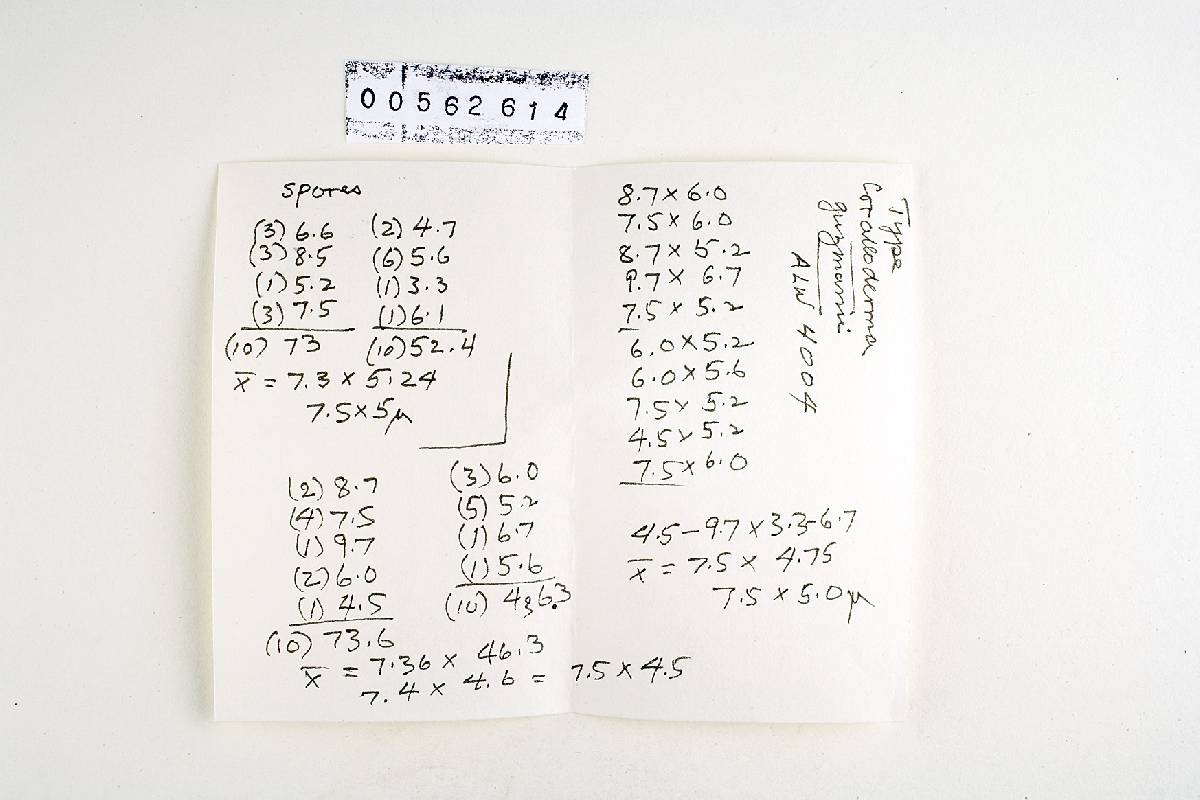 00562614
Spores
(3) 6.6 (2) 4.7
(3) 8.5 (6) 5.6
(1) 5.2 (1) 3.3
(3) 7.5 (1) 6.1
(10) 73 (10) 52.4
x̄ = 7.3 × 5.24
7.5 × 5 µ
(2) 8.7 (3) 6.0
(4) 7.5 (5) 5.2
(1) 9.7 (1) 6.7
(2) 6.0 (1) 5.6
(1) 4.5 (10) 46.3
(10) 73.6
x̄ = 7.36 × 46.3
7.4 × 4.6 = 7.5 × 4.5
8.7 × 6.0
7.5 × 6.0
8.7 × 5.2
9.7 × 6.7
7.5 × 5.2
6.0 × 5.2
6.0 × 5.6
7.5 × 5.2
4.5 × 5.2
7.5 × 6.0
4.5 – 9.7 × 3.3 – 6.7
x̄ = 7.5 × 4.75
7.5 × 5.0 µ
Type
Coralloderma
guzmanii
ALW 4004